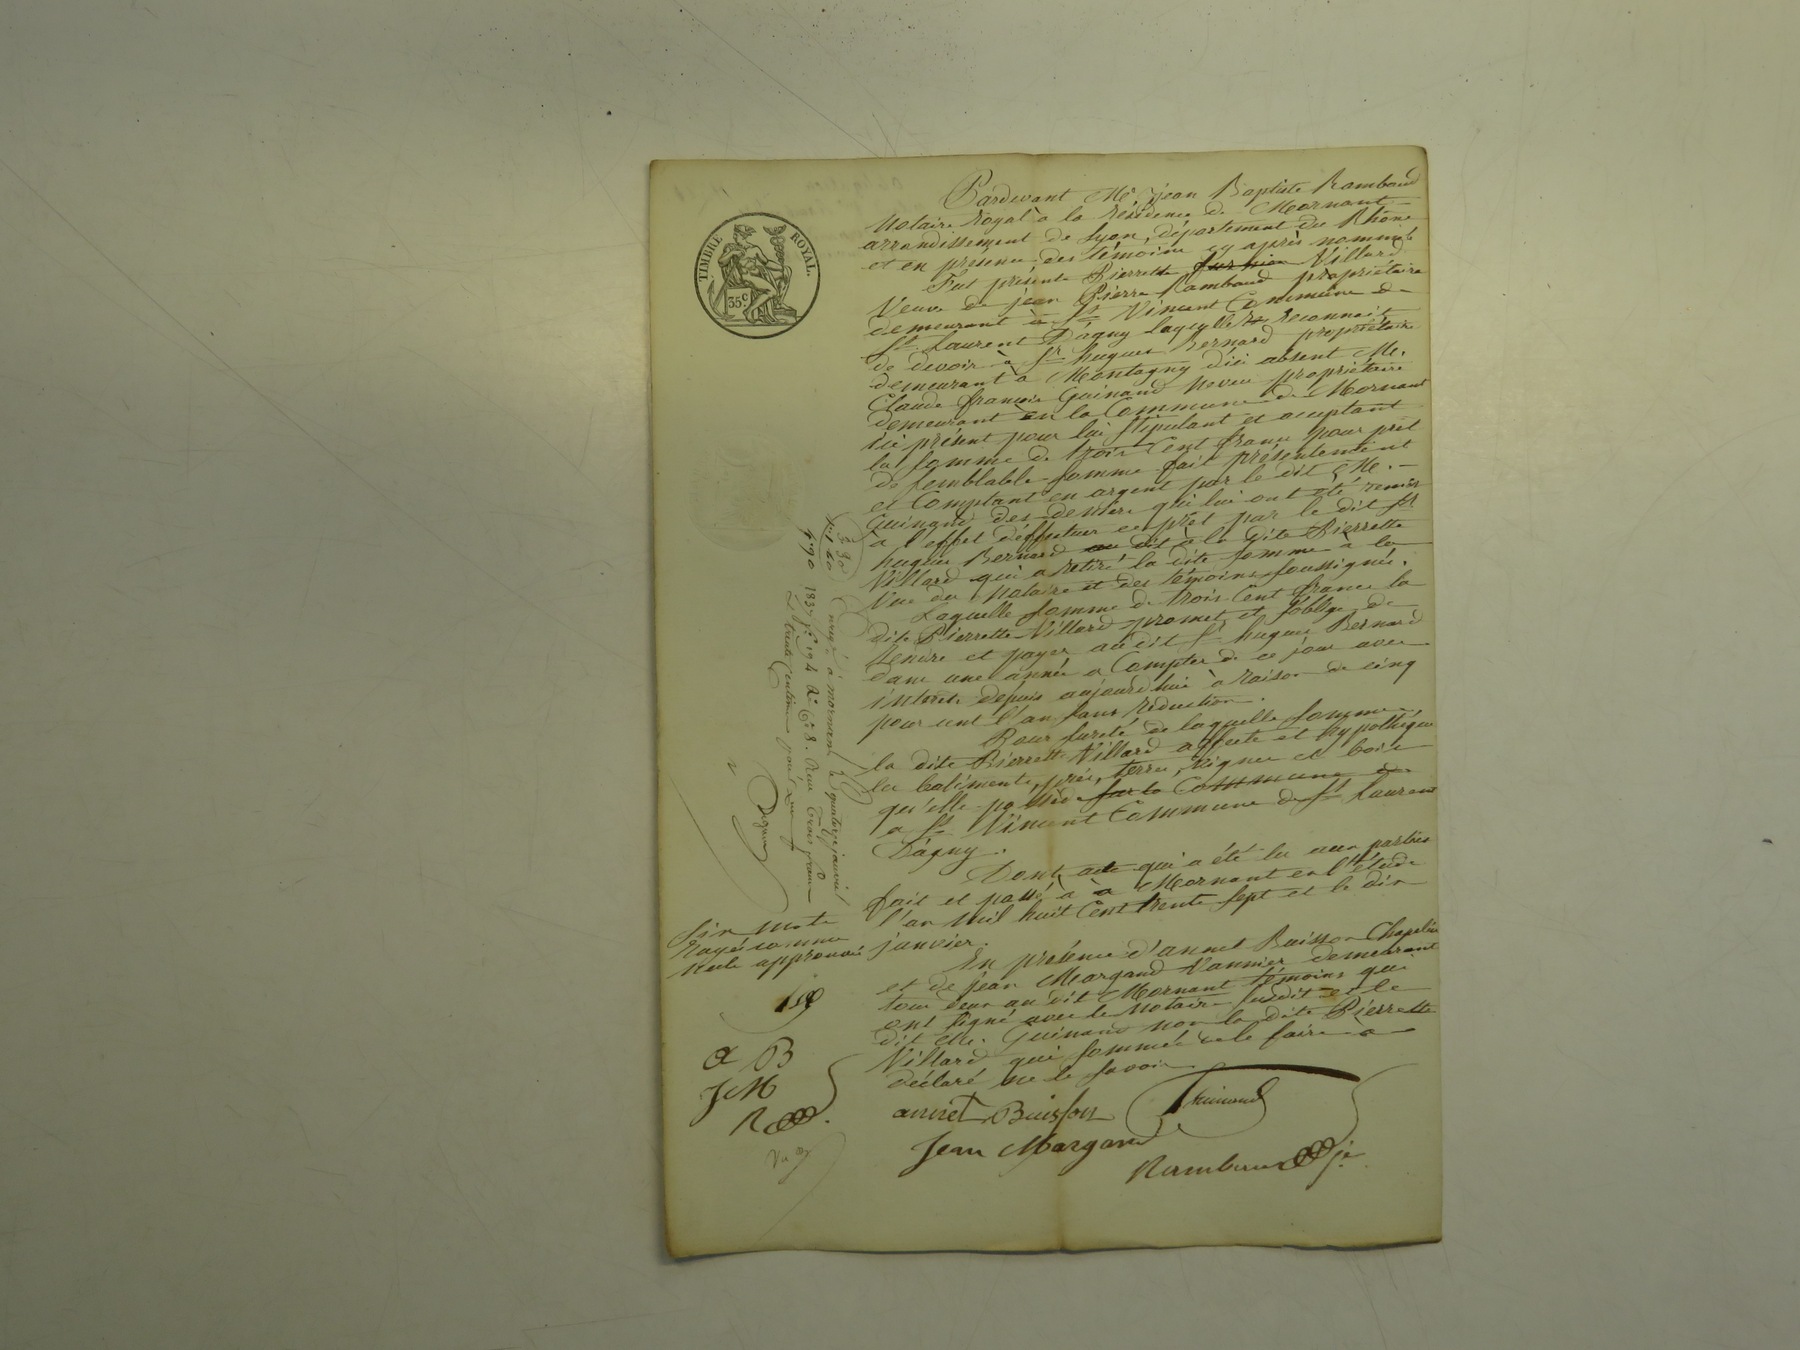 TIMBRE ROYAL.
35c
Pardevant Me. jean Baptiste Rambaud
Notaire royal à la résidence de Mornant
arrondissement de Lyon, département du Rhône
et en presence des témoins cy après nommés
Fut présente Pierrette Villard
Veuve de jean Pierre Rambaud propriétaire
demeurant à St. Vincent Commune de
St. Laurent D'agny laquelle reconnait
de devoir à Sr. hugues Bernard propriétaire
demeurant à Montagny d'ici absent Me.
Claude françois Guinand neveu propriétaire
demeurant en la Commune de Mornant
ici présent pour lui stipulant et acceptant
la somme de trois Cent francs pour prêt
de semblable somme fait présentement
et Comptant en argent par le dit Me.
Guinand des deniers qui lui ont été remis
à l'effet d'effectuer ce prêt par le dit Sr.
hugues Bernard à la dite Pierrette
Villard qui a retiré la dite somme à la
Vue du Notaire et des témoins soussignés.
Laquelle somme de trois Cent francs la
dite Pierrette Villard promet et s'oblige de
rendre et payer au dit Sr. hugues Bernard
dans une année a Compter de ce jour avec
intérêts depuis aujourd'hui à raison de cinq
pour cent l'an sans réduction.
Pour sureté de laquelle somme
la dite Pierrette Villard affecte et hypothèque
les batiments, prés, terres, vignes et bois
qu'elle possède sur la Commune de
a St. Vincent Commune de St. Laurent
D'agny.
Dont acte qui a été lu aux parties
fait et passé à a Mornant en l'étude
l'an mil huit Cent trente sept et le dix
janvier.
En présence d'annet Buisson Chapelier
et de jean Margand Vannier demeurant
tous deux au dit Mornant témoins qui
ont signé avec le Notaire susdit et le
dit Me. Guinand non la dite Pierrette
Villard qui sommée de le faire a
déclaré ne le savoir.
annet Buisson Guinand
Jean Margand
Rambaud
Enregé. à mornant le quatorze janvier
1837 fo. 194 Ro. Ce. 8. Reçu Trois francs
et trente centimes pour
3 30
Six mots
rayés comme
nuls approuvés
a B
JM
R